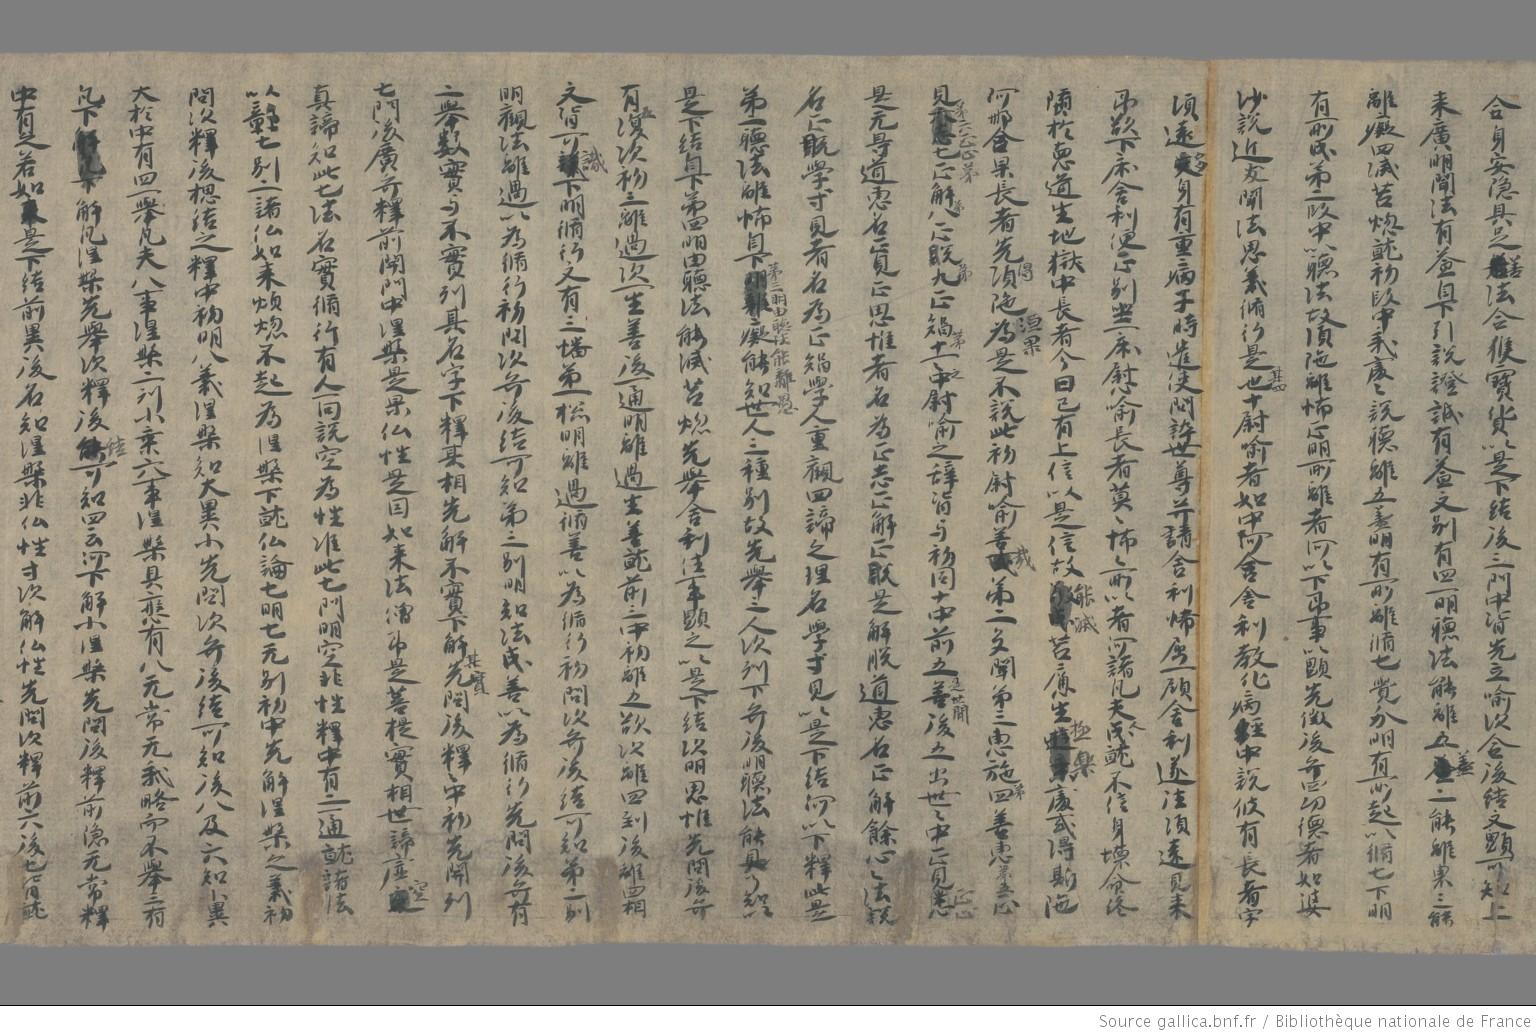 合身安隱具足善法合獲寶貨以是下結後三門中皆先立喻次合後結文顯可知上
來廣明聞法有益自下引說證誠有益文別有四一明聽法能離五蓋二能離果三解
離癡四滅苦惱就初段中我處處說聽離五蓋明有所離脩七覺分明有所起以脩七下明
有所成第二段中以聽法故須陀離怖正明所離者何以下吊事以顯先徵後弁四功德者如婆
沙說近友聞法思義脩行是其四世十尉喻者如中阿含舍利教化病經中說彼有長者字
須達身有重病于時遣使問訊世尊并請舍利怖屈一顧舍利遂往須達見來
吊欲下床舍利便止別坐一床慰喻長者莫怖莫怖所以者何諸凡夫人成就不信身壞命終
墮於惡道生地獄中長者今日已有上信以是信故能滅苦痛生極樂處或得斯陀
阿那含果長者先得須陀洹果為是不說此初尉喻善戒第二多聞第三惠施第四善惠第五正
見第六正第七正解第八正脫第九正知第十一之中尉喻之辭皆与初同十中前五是世間善後五出世世中正見惠
是无㝵道惠名正見正思惟者名為正志正解正脫是解脫道惠名正解餘心心法說
名正脫學寸見者名為正知學人重觀四諦之理名學寸見以是下結何以下釋此是
第一聽法離怖自下第三明由聽法能離愚癡能知世人三種別故先舉三人次列下弁後明聽法能具了知以
是下結自下第四明由聽法能滅苦惱先舉舍利往事顯之以是下結次明思惟先問後弁
有五復次初三離過次一生善後一通明離過生善就前三中初離五欲次離四到後離四相
文皆可識下明脩行文有三番第一總明離過脩善以為脩行初問次弁後結可知第二別
明觀法離過以為脩行初問次弁後結可知第三別明知法成善以為脩行先問後弁有
二舉數實与不實列其名字下釋其相先解不實下解其實先問後釋中初先開列
七門後廣弁釋前開門中涅槃是果仏性是因如来法僧吊是菩提實相世諦虛空
真諦知此七法名實脩行有人同說空為性准此七門明空非性釋中有二通就諸法
以釋七別二諸仏如来煩惱不起為涅槃下就仏論七明七无別初中先解涅槃之義初
問次釋後惣結之釋中初明八義涅槃知大異小先問次弁後結可知後八及六知小異
大於中有四一舉凡夫八事涅槃二列小乘六事涅槃具應有八无常无我略而不舉三苻
凡下解凡涅槃先舉次釋後結可知四云何下解小涅槃先問後釋前隱无常釋
中有之若如是下結前異後名知涅槃非仏性寸次解仏性先問次釋前六後七皆就
Source gallica.bnf.fr / Bibliothèque nationale de France